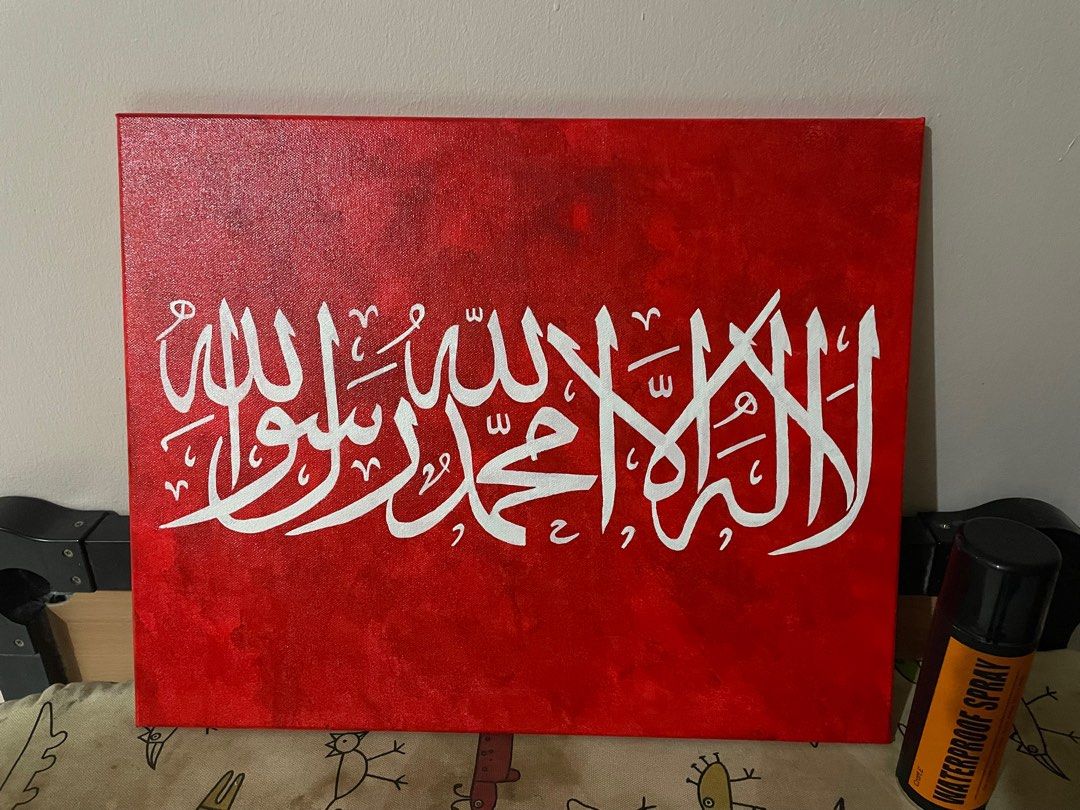 لَا إِلٰهَ إِلَّا اللّٰهُ مُحَمَّدٌ رَسُولُ اللهِ
WATERPROOF SPRAY